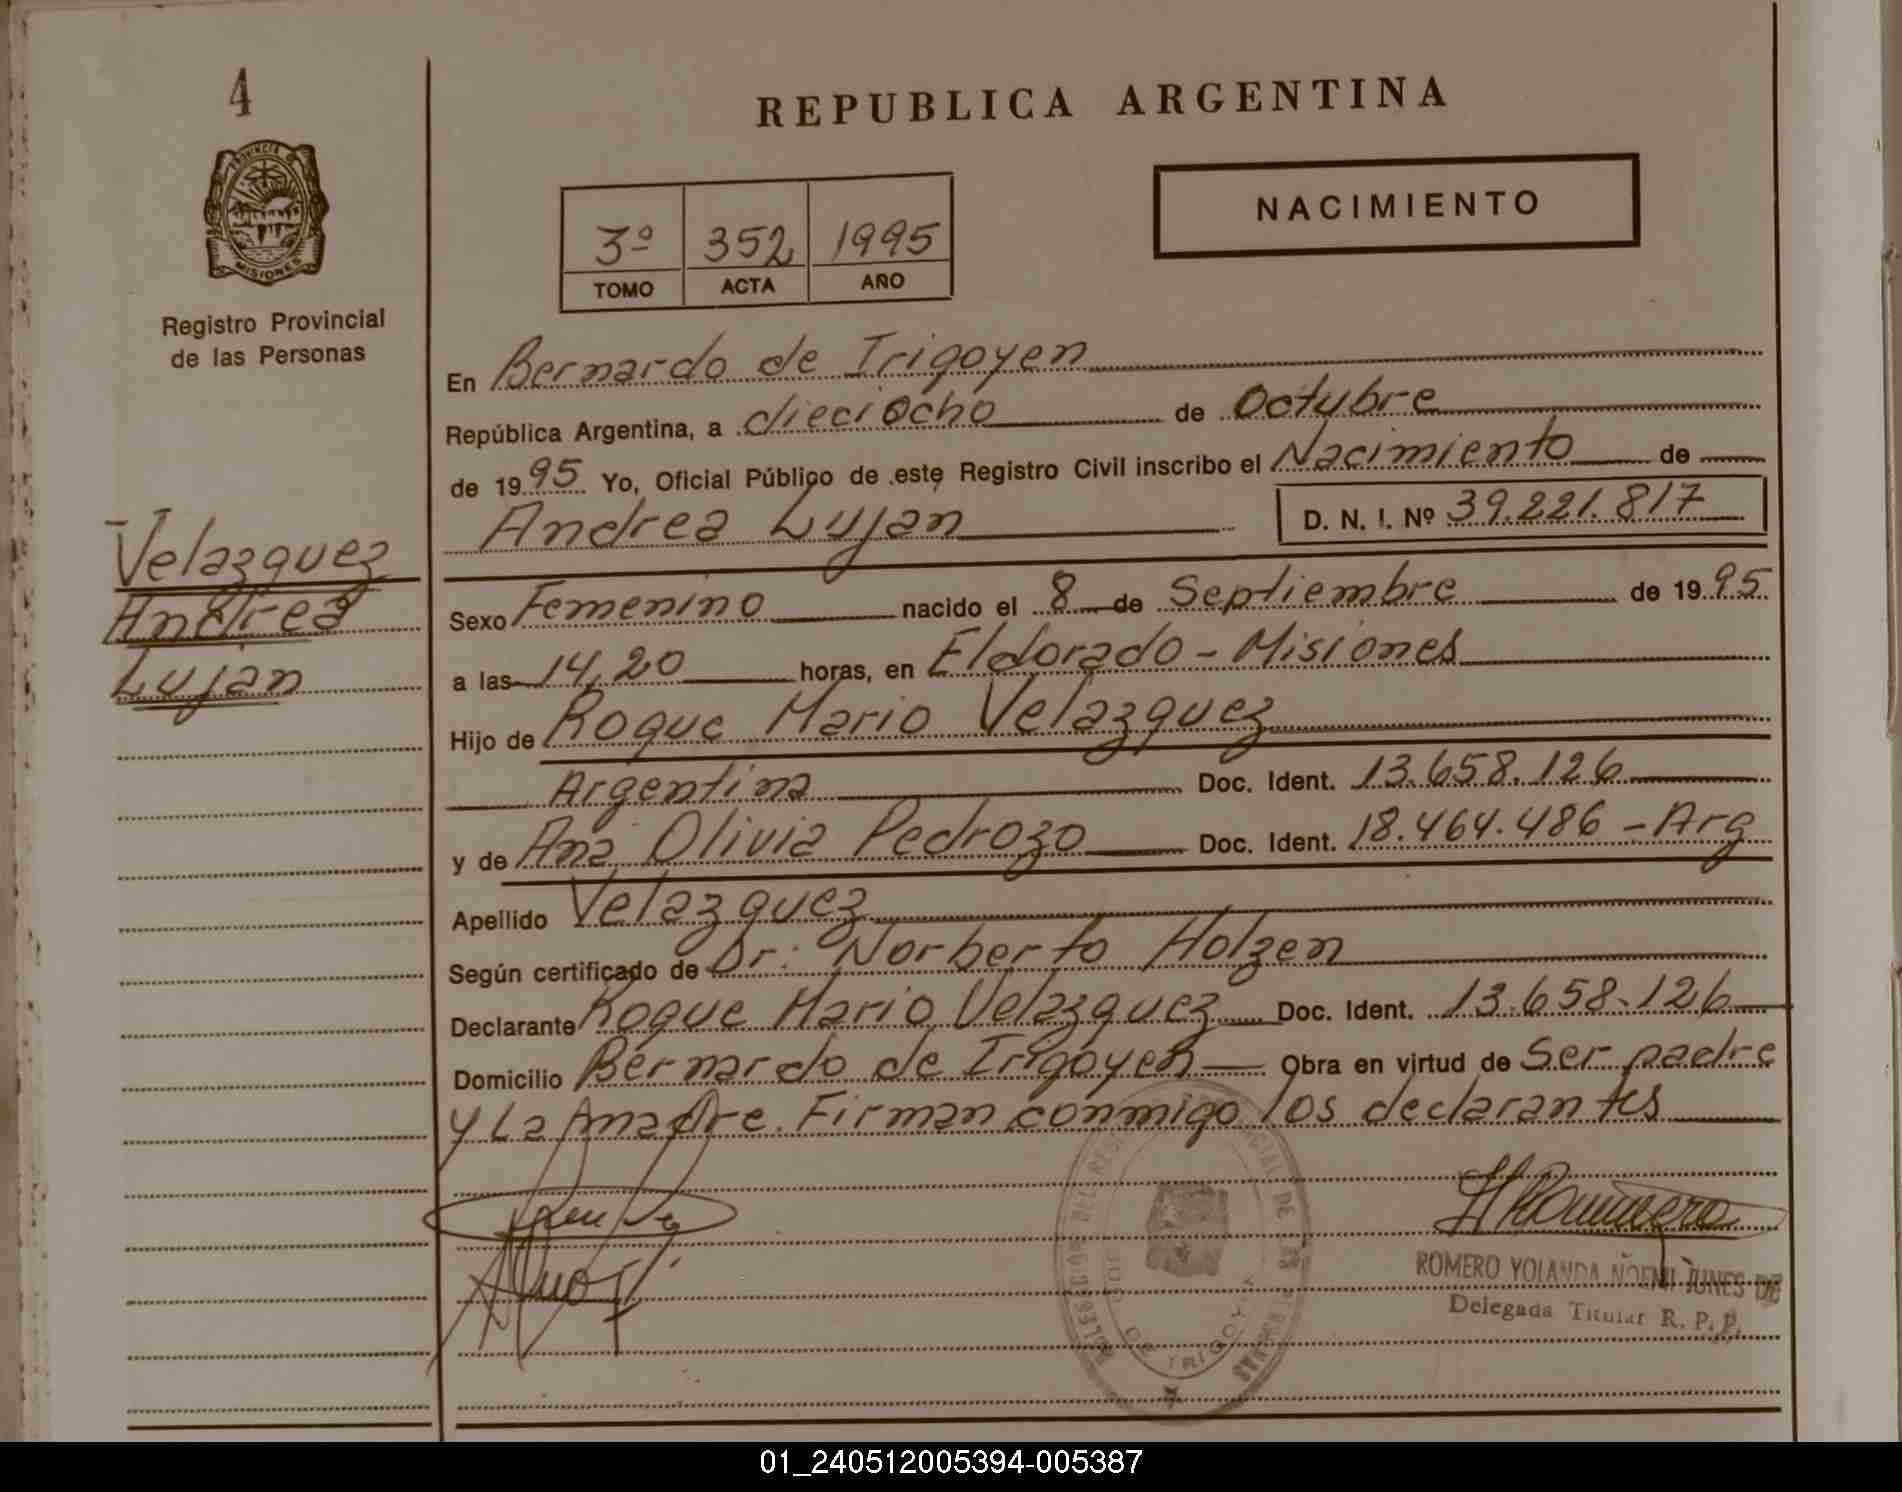 4
PROVINCIA DE
MISIONES
Registro Provincial
de las Personas
Velazquez
Andrea
Lujan
REPUBLICA ARGENTINA
NACIMIENTO
3º 352 1995
TOMO ACTA AÑO
En Bernardo de Irigoyen
República Argentina, a dieciocho de Octubre
de 1995 Yo, Oficial Público de este Registro Civil inscribo el Nacimiento de
Andrea Lujan D. N. I. Nº 39.221.817
Sexo Femenino nacido el 8 de Septiembre de 1995
a las 14,20 horas, en Eldorado - Misiones
Hijo de Roque Mario Velazquez
Argentina Doc. Ident. 13.658.126
y de Ana Olivia Pedrozo Doc. Ident. 18.464.486 - Arg
Apellido Velazquez
Según certificado de Dr: Norberto Holzen
Declarante Roque Mario Velazquez Doc. Ident. 13.658.126
Domicilio Bernardo de Irigoyen Obra en virtud de Ser padre
y La madre. Firman conmigo los declarantes
ROMERO YOLANDA NOEMI JUNES DE
Delegada Titular R. P. P.
01_240512005394-005387